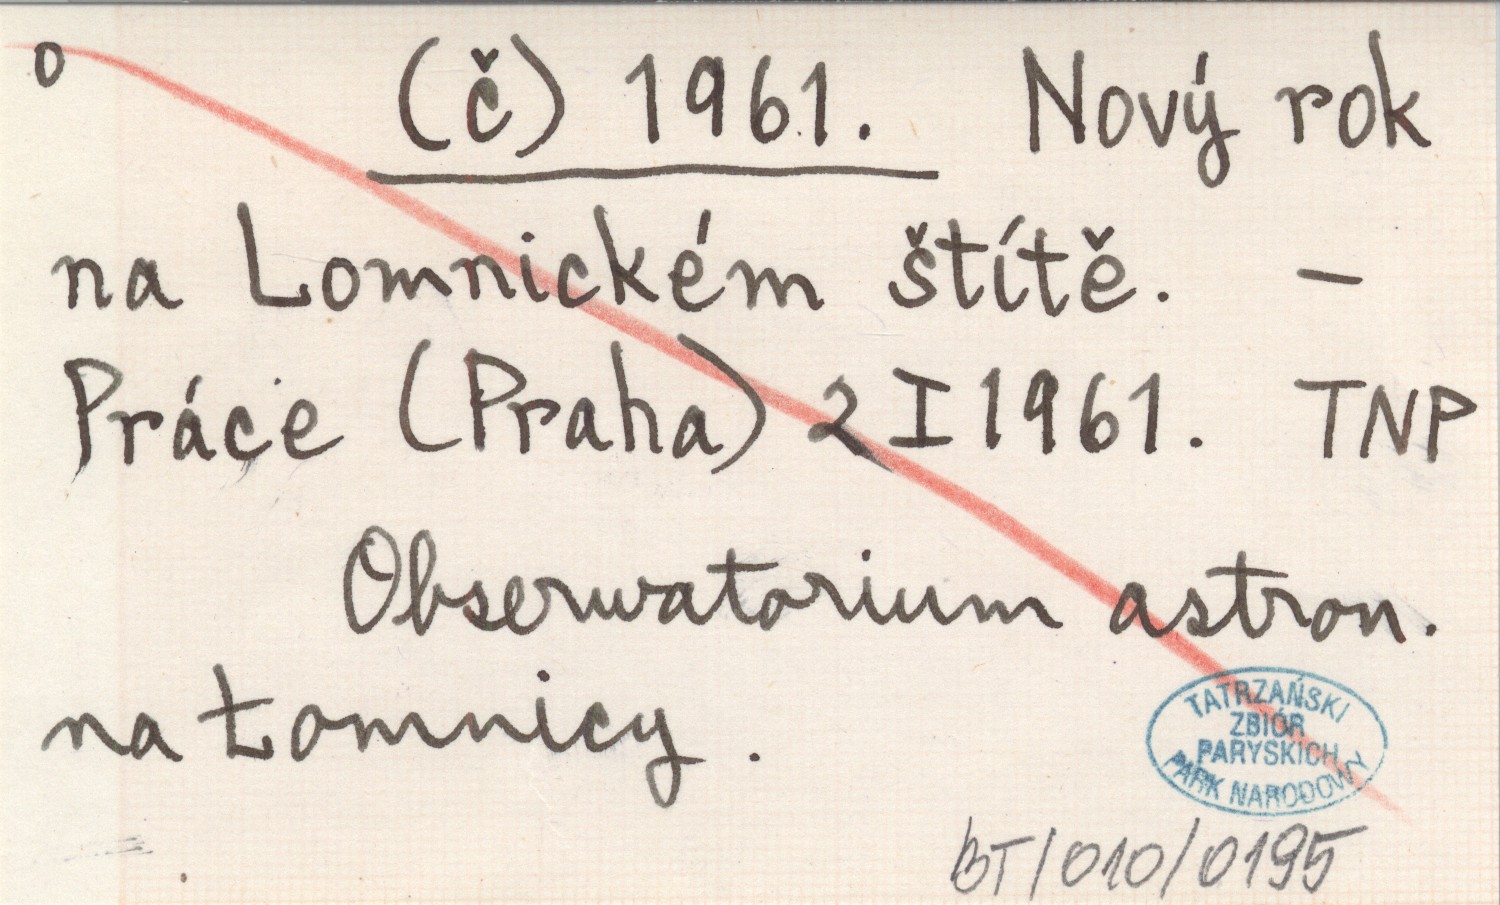 o (č) 1961. Nový rok
na Lomnickém štítě. –
Práce (Praha) 2 I 1961. TNP
Obserwatorium astron.
na Łomnicy.
TATRZAŃSKI
ZBIÓR
PARYSKICH
PARK NARODOWY
BT/010/0195